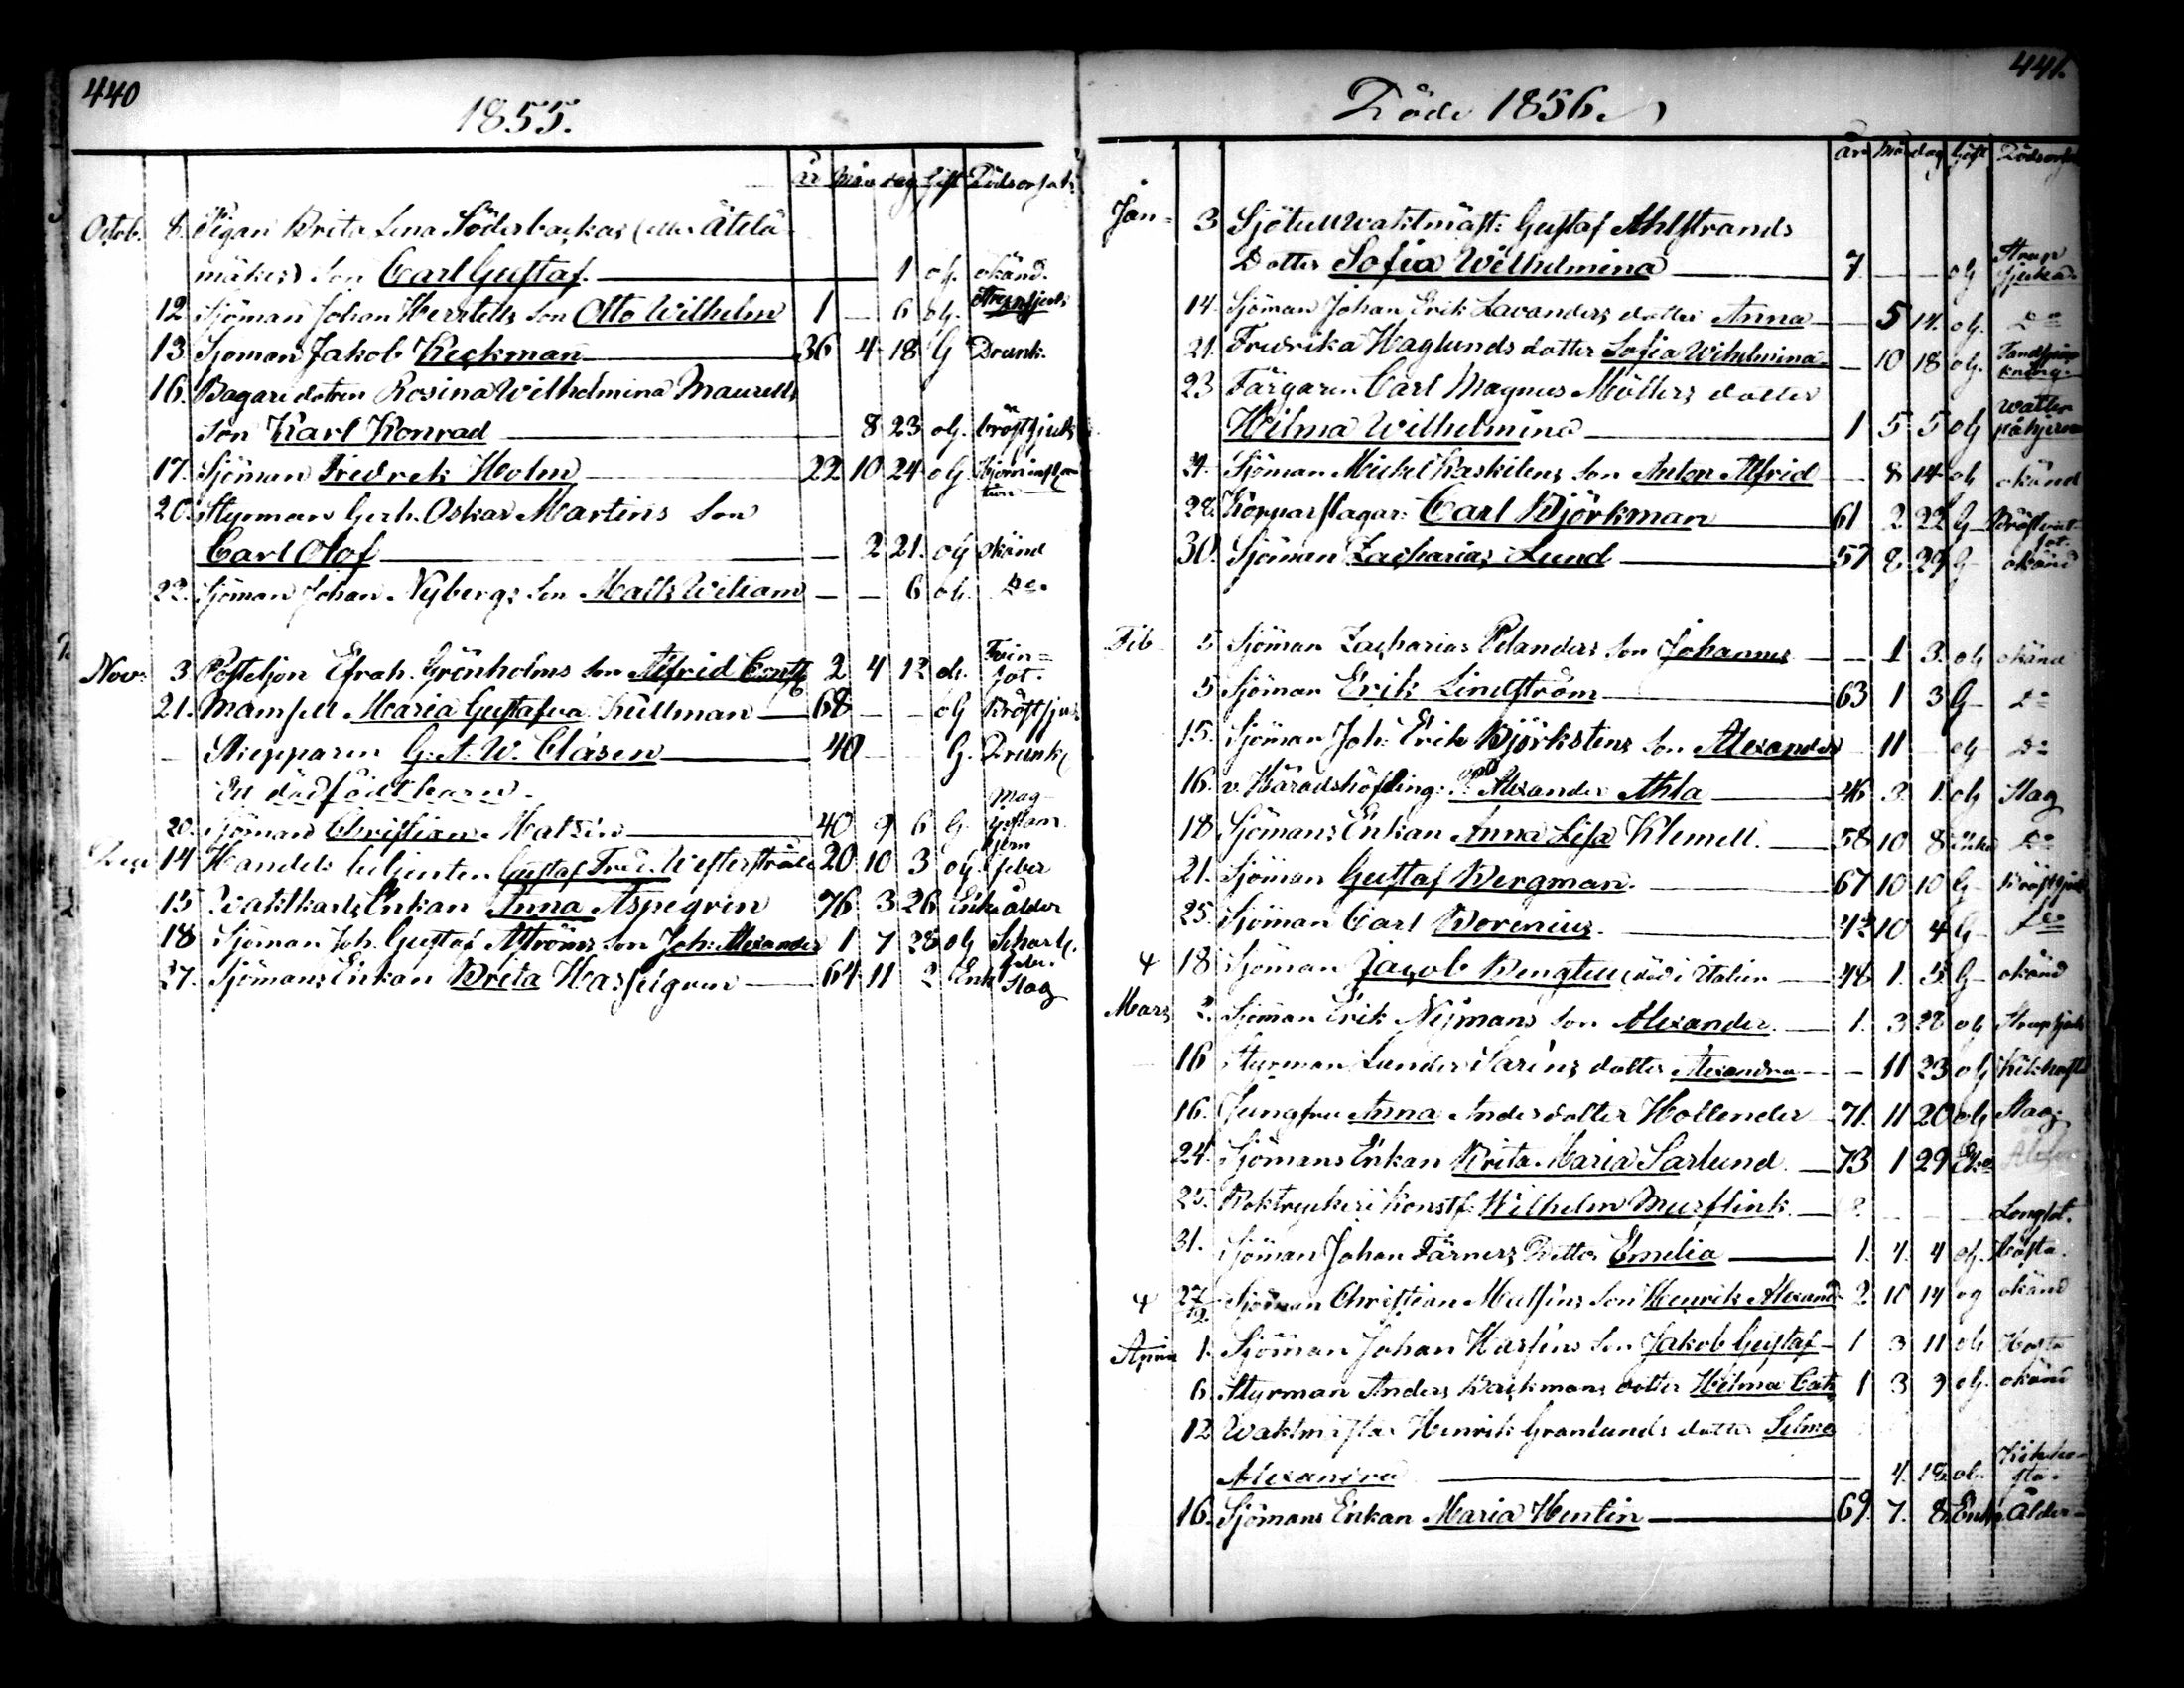 440
1855.
år mån dag Gift Dödsorsak
Octob. 8. Pigan Brita Lena Söderbackas (eller Ätelä
mäkes) son Carl Gustaf. 1 og. okänd.
12. Sjöman Johan Hertells son Otto Wilhelm 1 — 6 og. Strupsjuka
13 Sjöman Jakob Keckman 36 4 18 G Drunk.
16. Bagaredottren Rosina Wilhelmina Maurells
son Karl Konrad 8 23 og. bröstsjuk
17. Sjöman Fredrek Holm 22 10 24 og
20. Styrman Gerh. Oskar Martins son
Carl Olof — 2 21. og okänd
22. Sjöman Johan Nybergs son Matts Wiliam — — 6 og. Do.
Nov. 3 Posteljon Efrah. Grönholms son Alfrid Const. 2 4 12 og.
21. Mamsell Maria Gustafva Kullman 68 — — og Bröstsjuk
— Skepparen G. A. W. Clásen 40 — — G. Drunk.
Ett dödfödt barn.
20. Sjöman Christian Matsén 40 9 6 G.
14 Handels betjenten Gustaf Fred. Westerstråle 20 10 3 og. feber
15 Waktkarls Enkan Anna Aspegren 76 3 26 Enka ålder
18 Sjöman Joh. Gustaf Åströms son Joh: Alexander 1 7 28 og Scharl. feber.
27. Sjömans Enkan Brita Hasselgren 64 11 2 Enk Slag
441.
Döde 1856.
år Mån dag Gift Dödsorsak
Jan= 3 Sjötullwaktmäst: Gustaf Ahlstrands
Dotter Sofia Wilhelmina 7 — — og Strup sjukan
14. Sjöman Johan Erik Lavanders dotter Anna — 5 14. og. Do
21. Fredrika Haglunds dotter Sofia Wilhelmina — 10 18 og.
23 Färgaren Carl Magnus Möllers dotter
Hilma Wilhelmina 1 5 5 og Watten på hjernan
Sjöman Mickel Kaskilens son Anton Alfrid — 8 14 og okänd
28. Kopparslagar: Carl Björkman 61 2 22 G
30. Sjöman Zacharias Lund 57 8 29 G okänd
Feb 5 Sjöman Zacharias Pelanders son Johannes — 1 3. og okänd
5 Sjöman Erik Lindström 63 1 3 G Do
15. Sjöman Joh: Erik Björkstens son Alexander — 11 — og Do
16. v. Häradshöfding: Alexander Ahla 46 3. 1. og Slag
18 Sjömans Enkan Anna Lisa Klemell. 58 10 8 enka Do
21. Sjöman Gustaf Bergman. 67 10 10 G Bröstsjuk
25. Sjöman Carl Borenius. 42 10 4 G Do
18 Sjöman Jacob Bengtell (död i Italien 48 1. 5 G okänd
Mars 2. Sjöman Erik Nymans son Alexander. 1. 3 28 og Strupsjuk
16 Styrman Lunder Sarins dotter Alexandra — 11 23 og Kikhosta
16. Jungfru Anna Andersdotter Hollender 71. 11 20 og Slag.
24. Sjömans Enkan Brita Maria Sarlund. 73 1 29 Eka Ålder
25. Boktryckeri konstf. Wilhelm Murflink. Lungsot.
31. Sjöman Johan Färners Dotter Emelia 1. 4. 4 og. Hosta.
27/12. Sjöman Christian Matsins son Henrik Alexand. 2. 10 14 og okänd
April 1. Sjöman Johan Harsins son Jakob Gustaf 1 3 11 og Hosta
6. Styrman Anders Backmans dotter Hilma Cath 1 3 9 og. okänd
12 Waktmästar Henrik Granlunds dotter Selma
Alexandra — 4. 18 og. Kikhosta.
16. Sjömans Enkan Maria Hentin 69. 7. 8. Enk. Ålder